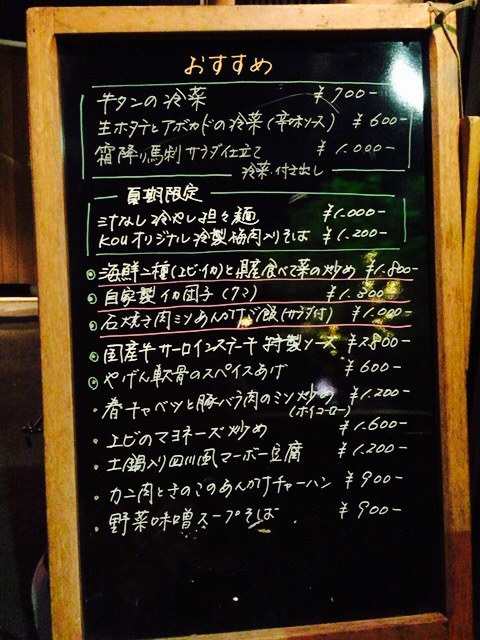 おすすめ
牛タンの冷菜 ¥700-
生ホタテとアボカドの冷菜(辛味ソース) ¥600-
霜降り馬刺サラダ仕立て ¥1.000-
冷菜.付き出し
夏期限定
汁なし冷やし担々麺 ¥1.000-
KOUオリジナル冷製梅肉入りそば ¥1.200-
海鮮二種(エビイカ)と県産食べて菜の炒め ¥1.800-
自家製イカ団子(7コ) ¥1.300-
石焼き肉ミソあんかけご飯(サラダ付) ¥1.000-
国産牛サーロインステーキ 特製ソース ¥2800-
やげん軟骨のスパイスあげ ¥600-
春キャベツと豚バラ肉のミソ炒め ¥1.200-
(ホイコーロー)
エビのマヨネーズ炒め ¥1.600-
土鍋入り四川風マーボー豆腐 ¥1.200-
カニ肉ときのこのあんかけチャーハン ¥900-
野菜味噌スープそば ¥900-